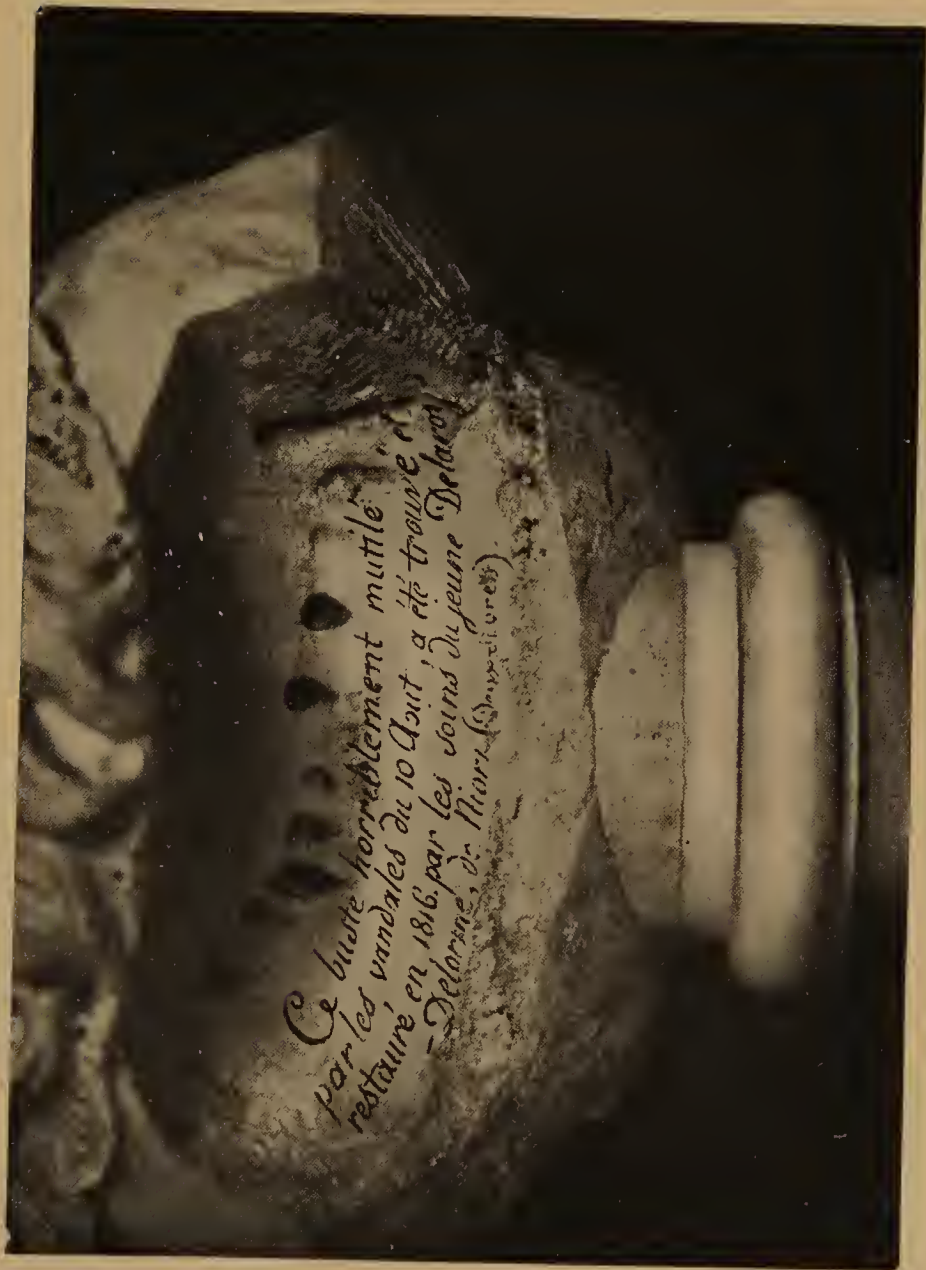 Ce buste horriblement mutilé
par les vandales du 10 Aout, a été trouvé et
restauré en 1816. par les soins du jeune Delaroy
-Delorme, de Niort